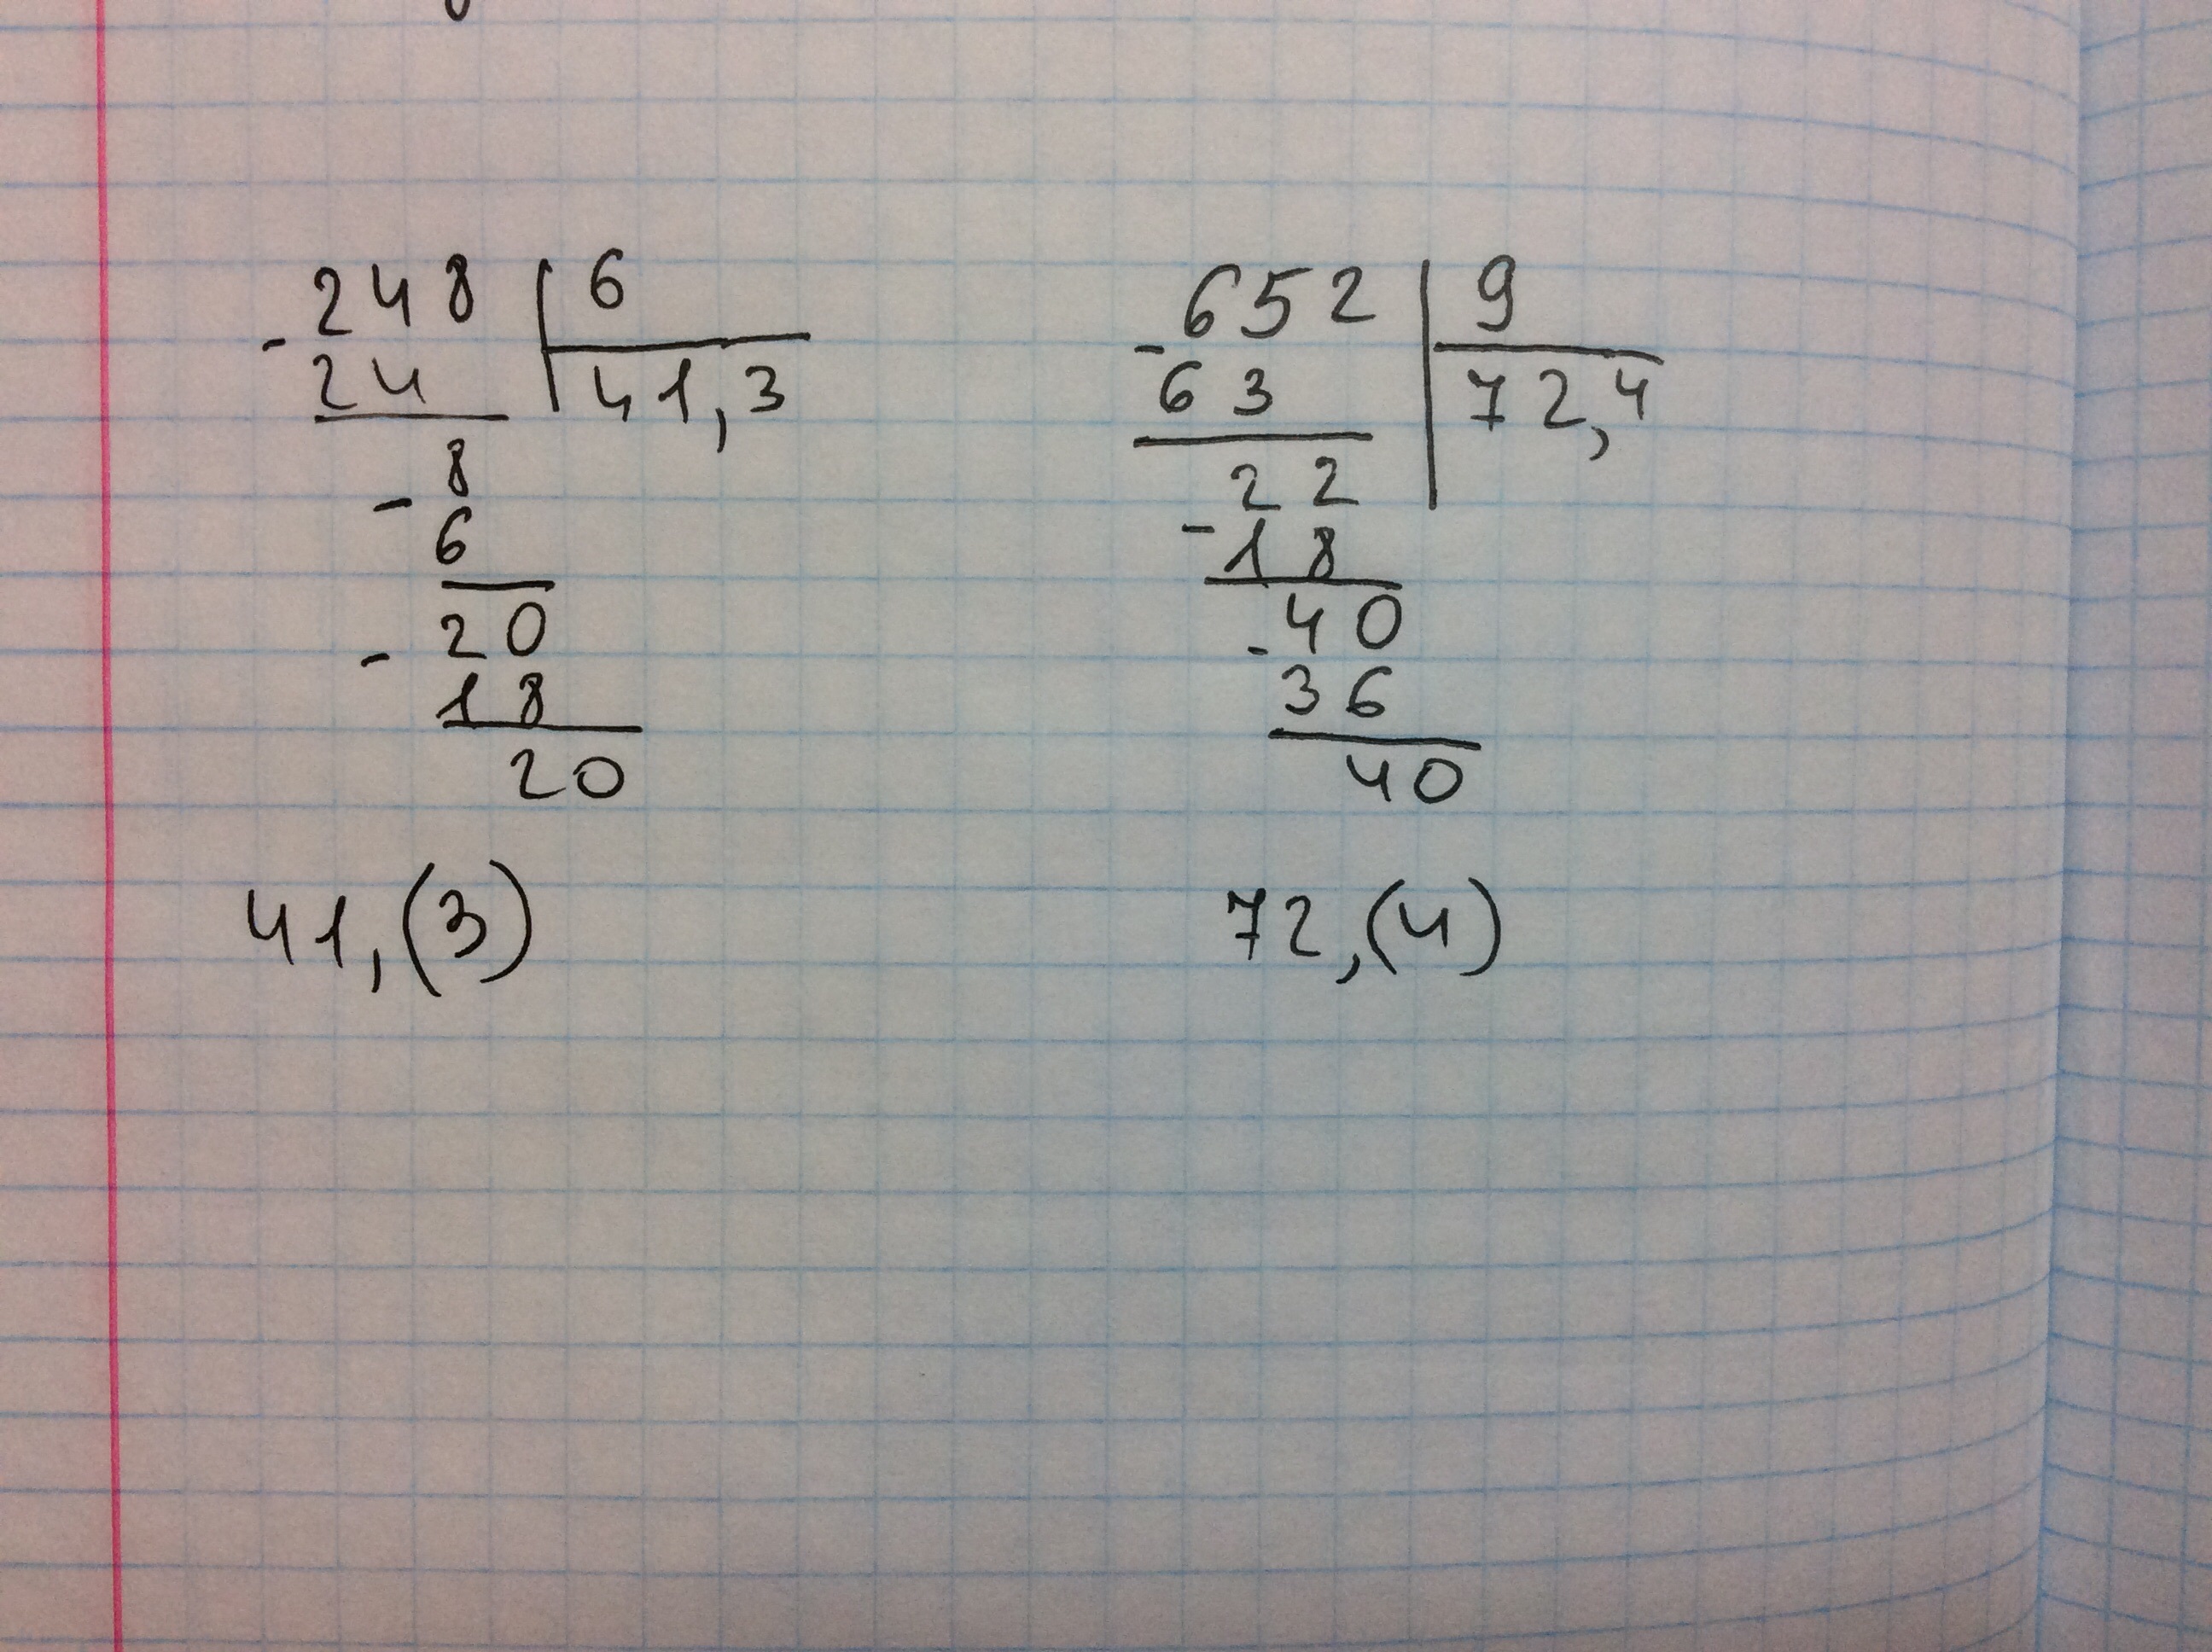 - 248 | 6
24 | 41,3
- 8
6
- 20
18
20
41,(3)
- 652 | 9
63 | 72,4
22
- 18
- 40
36
40
72,(4)